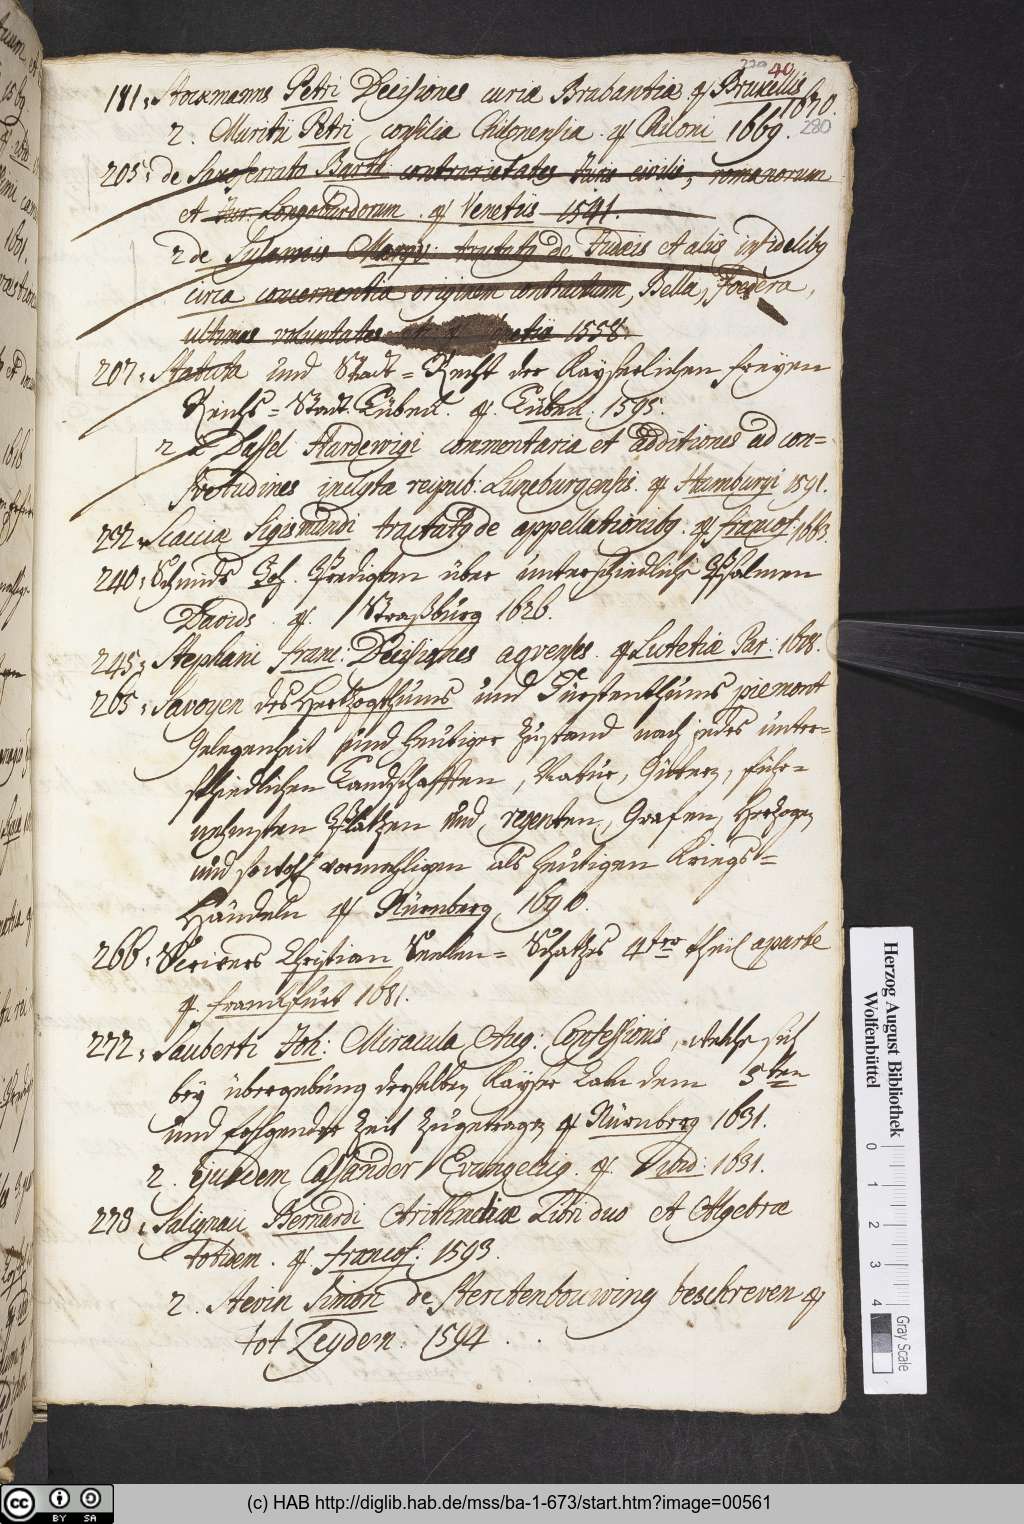 40
181. Stockmanns Petri Decisiones curiæ Brabantiæ 4 Bruxellis 1670.
280
2. Mauritii Petri consilia Chilonensia. 4 Kiloni 1669.
205. de Saxoferrato Bartl. contrarietates Juris civilis, romanorum
et Jur. Longobardorum. 4 Venetiis 1541.
2 de Susannis Marqu: tractat9 de Judæis et aliis infidelib9
circa concernentia originem contractuum, Bella, Foedera,
ultimas voluntates 1558.
207. Statuta und Stadt=Recht der Kayserlichen freyen
Reichs=Stadt Lübeck. 4. Lübeck. 1595.
2 à Dassel Hardewigi commentaria et additiones ad con=
svetudines inclytæ reipub: Luneburgensis. 4 Hamburgi 1591.
Scacciæ Sigismundi tractat9 de appellationib9. 4. francof: 1663.
240. Schmids Joh. Predigten über unterschiedliche Psalmen
Davids. 4. Straßburg 1626.
245. Stephani franc: Decisiones aqvenses. 4 Lutetiæ Par: 1618.
265. Savoyen des Hertzogthums und Fürstenthums piemont
Gelegenheit und heutiger Zustand nach jedes unter=
schiedlichen Landschafften, Natur, Gütter, führ=
nehmsten Plätzen und regenten, Grafen, Hertzogen
und sowohl vormahligen als heutigen Kriegs=
Händeln 4 Nürnberg 1690.
266. Scrivers Christian Seelen=Schatzes 4ter theil aparte
4. franckfurt 1681.
272. Sauberti Joh: Miracula Aug: Confessionis, welche sich
bey übergebung derselben Kayser Carln dem 5ten
und folgender Zeit zugetragen 4 Nürnberg 1631.
2. Ejusdem Cassander Evangelicus. 4. Ibid: 1631.
273. Salignaci Bernardi Arithmeticæ Libri duo et Algebræ
totidem. 4 francof: 1593.
2. Stevin Simon de Sterctenbouwing beschreven 4
tot Leyden. 1594.
Herzog August Bibliothek
Wolfenbüttel
0 1 2 3 4
Gray Scale
cc BY SA
(c) HAB http://diglib.hab.de/mss/ba-1-673/start.htm?image=00561